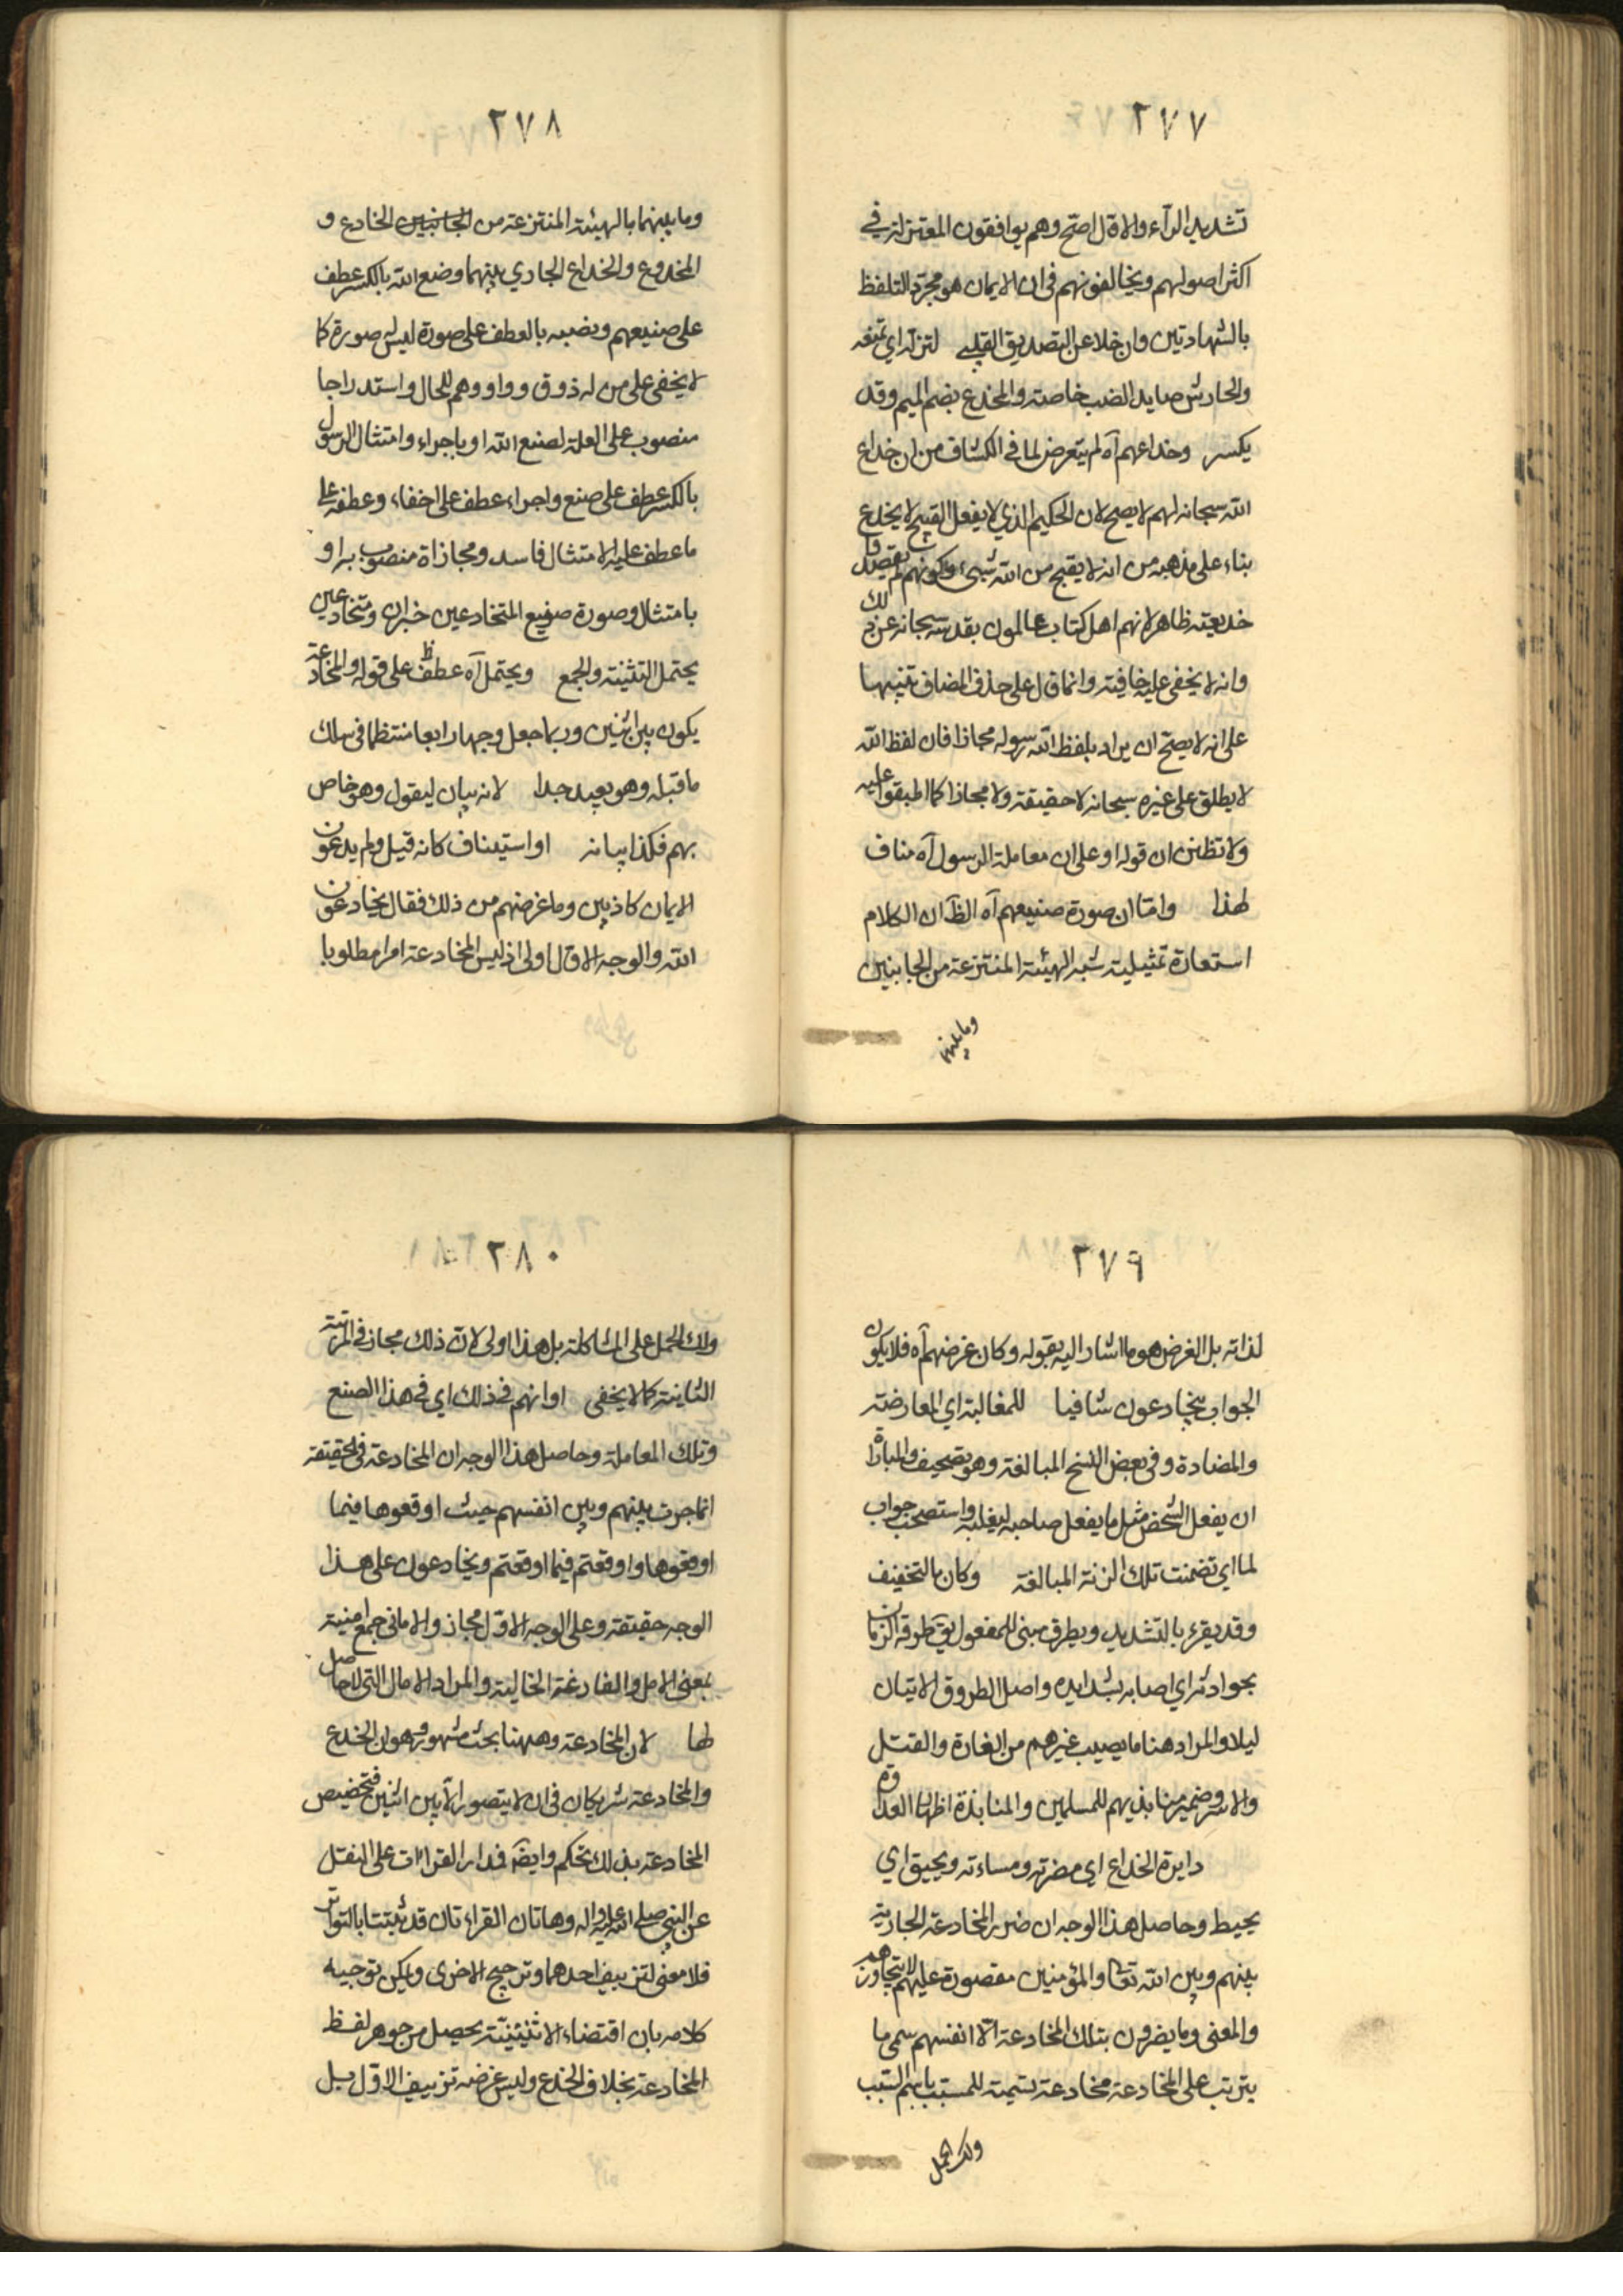 ٢٧٧
تشديد الرآء والاول اصحّ وهم يوافقون المعتزلة في
اكثر اصولهم ويخالفونهم في ان الايمان هو مجرد التلفظ
بالشهادتين وان خلا عن التصديق القلبي لتزله اي تمنعه
والحارش صايد الضب خاصة والمخدع بضم الميم وقد
يكسر وخداعهم آه لم يتعرض لما في الكشاف من ان خداع
الله سبحانه لهم لا يصح لان الحكيم الذي لا يفعل القبيح لا يخدع
بناء على مذهبه من انه لا يقبح من الله شيئ وكونهم لم يقصدوا
خديعته ظاهر لانهم اهل كتاب عالمون بقدسه سبحانه عن ذلك
وانه لا يخفى عليه خافية وانما قال على حذف المضاف تنبيها
على انه لا يصحّ ان يراد بلفظ الله رسوله مجازا فان لفظ الله
لا يطلق على غيره سبحانه لا حقيقة ولا مجازا كما اطبقوا عليه
ولا تظنن ان قوله او على ان معاملة الرسول آه مناف
لهذا وامّا ان صورة صنيعهم آه الظّ ان الكلام
استعارة تمثيلية شبه الهيئة المنتزعة من الجانبين
وما بينهما
٢٧٨
وما بينهما بالهيئة المنتزعة من الجانبين الخادع و
المخدوع والخداع الجاري بينهما وضع الله بالكسر عطف
على صنيعهم ونصبه بالعطف على صورة ليس صورة كا
لا يخفى على من له ذوق وواو وهم للحال واستدراجا
منصوب على العلة لصنع الله او باجراء وامتثال الرسول
بالكسر عطف على صنع واجراء عطف على اخفاء وعطفه على
ما عطف عليه الامتثال فاسد ومجازاة منصوب به او
بامتثال وصورة صنيع المتخادعين خبر ان ومتخادعين
يحتمل التثنية والجمع ويحتمل آه عطف ظ على قوله والمخادعة
يكون بين اثنين وربما جعل وجها رابعا منتظما في سلك
ما قبله وهو بعيد جدا لانه بيان ليقول وهو خاص
بهم فكذا بيانه او استيناف كانه قيل ولم يدعون
الايمان كاذبين وما غرضهم من ذلك فقال يخادعون
الله والوجه الاول اولى اذ ليس المخادعة امرا مطلوبا
٢٧٩
لذاته بل الغرض هو ما اشار اليه بقوله وكان غرضهم آه فلا يكون
الجواب بيخادعون شافيا للمغالبة اي المعارضة
والمضادة وفي بعض النسخ المبالغة وهو تصحيف والمباراة
ان يفعل الشخص مثل ما يفعل صاحبه ليغلبه واستصحب جواب
لما اي تضمنت تلك الزنة المبالغة وكان بالتخفيف
وقد يقرء بالتشديد ويطرق مبني للمفعول يق طرقه الزمان
بحوادثه اي اصابه بشدايده واصل الطروق الاتيان
ليلا والمراد هنا ما يصيب غيرهم من الغارة والقتل
والاسر وضمير منابذيهم للمسلمين والمنابذة اظهار العداوة
دايرة الخداع اي مضرته ومساءته ويحيق اي
يحيط وحاصل هذا الوجه ان ضرر المخادعة الجارية
بينهم وبين الله تعالى والمؤمنين مقصورة عليهم لا يتجاوزهم
والمعنى وما يضرون بتلك المخادعة الّا انفسهم سمى ما
يترتب على المخادعة مخادعة تسمية للمسبب باسم السبب
ولك الحمل
٢٨٠
ولك الحمل على المشاكلة بل هذا اولى لانّ ذلك مجاز في المرتبة
الثانية كما لا يخفى او انهم في ذلك اي في هذا الصنع
وتلك المعاملة وحاصل هذا الوجه ان المخادعة في الحقيقة
انما جرت بينهم وبين انفسهم حيث اوقعوها فيما
اوقعوها واوقعتم فيما اوقعتم ويخادعون على هذا
الوجه حقيقة وعلى الوجه الاوّل مجاز والاماني جمع امنية
بمعنى الامل والفارغة الخالية والمراد الامال التي لا حاصل
لها لان المخادعة وههنا بحث مشهور وهو ان الخدع
والمخادعة شريكان في ان لا يتصور الّا بين اثنين فتخصيص
المخادعة بذلك تحكم وايضا فمدار القراءات على النقل
عن النبي صلى الله عليه واله وهاتان القراءتان قد ثبتتا بالتواتر
فلا معنى لتزييف احدهما وترجيح الاخرى ويمكن توجيه
كلامه بان اقتضاء الاثنينيّة يحصل من جوهر لفظ
المخادعة بخلاف الخدع وليس غرضه تزييف الاوّل بل